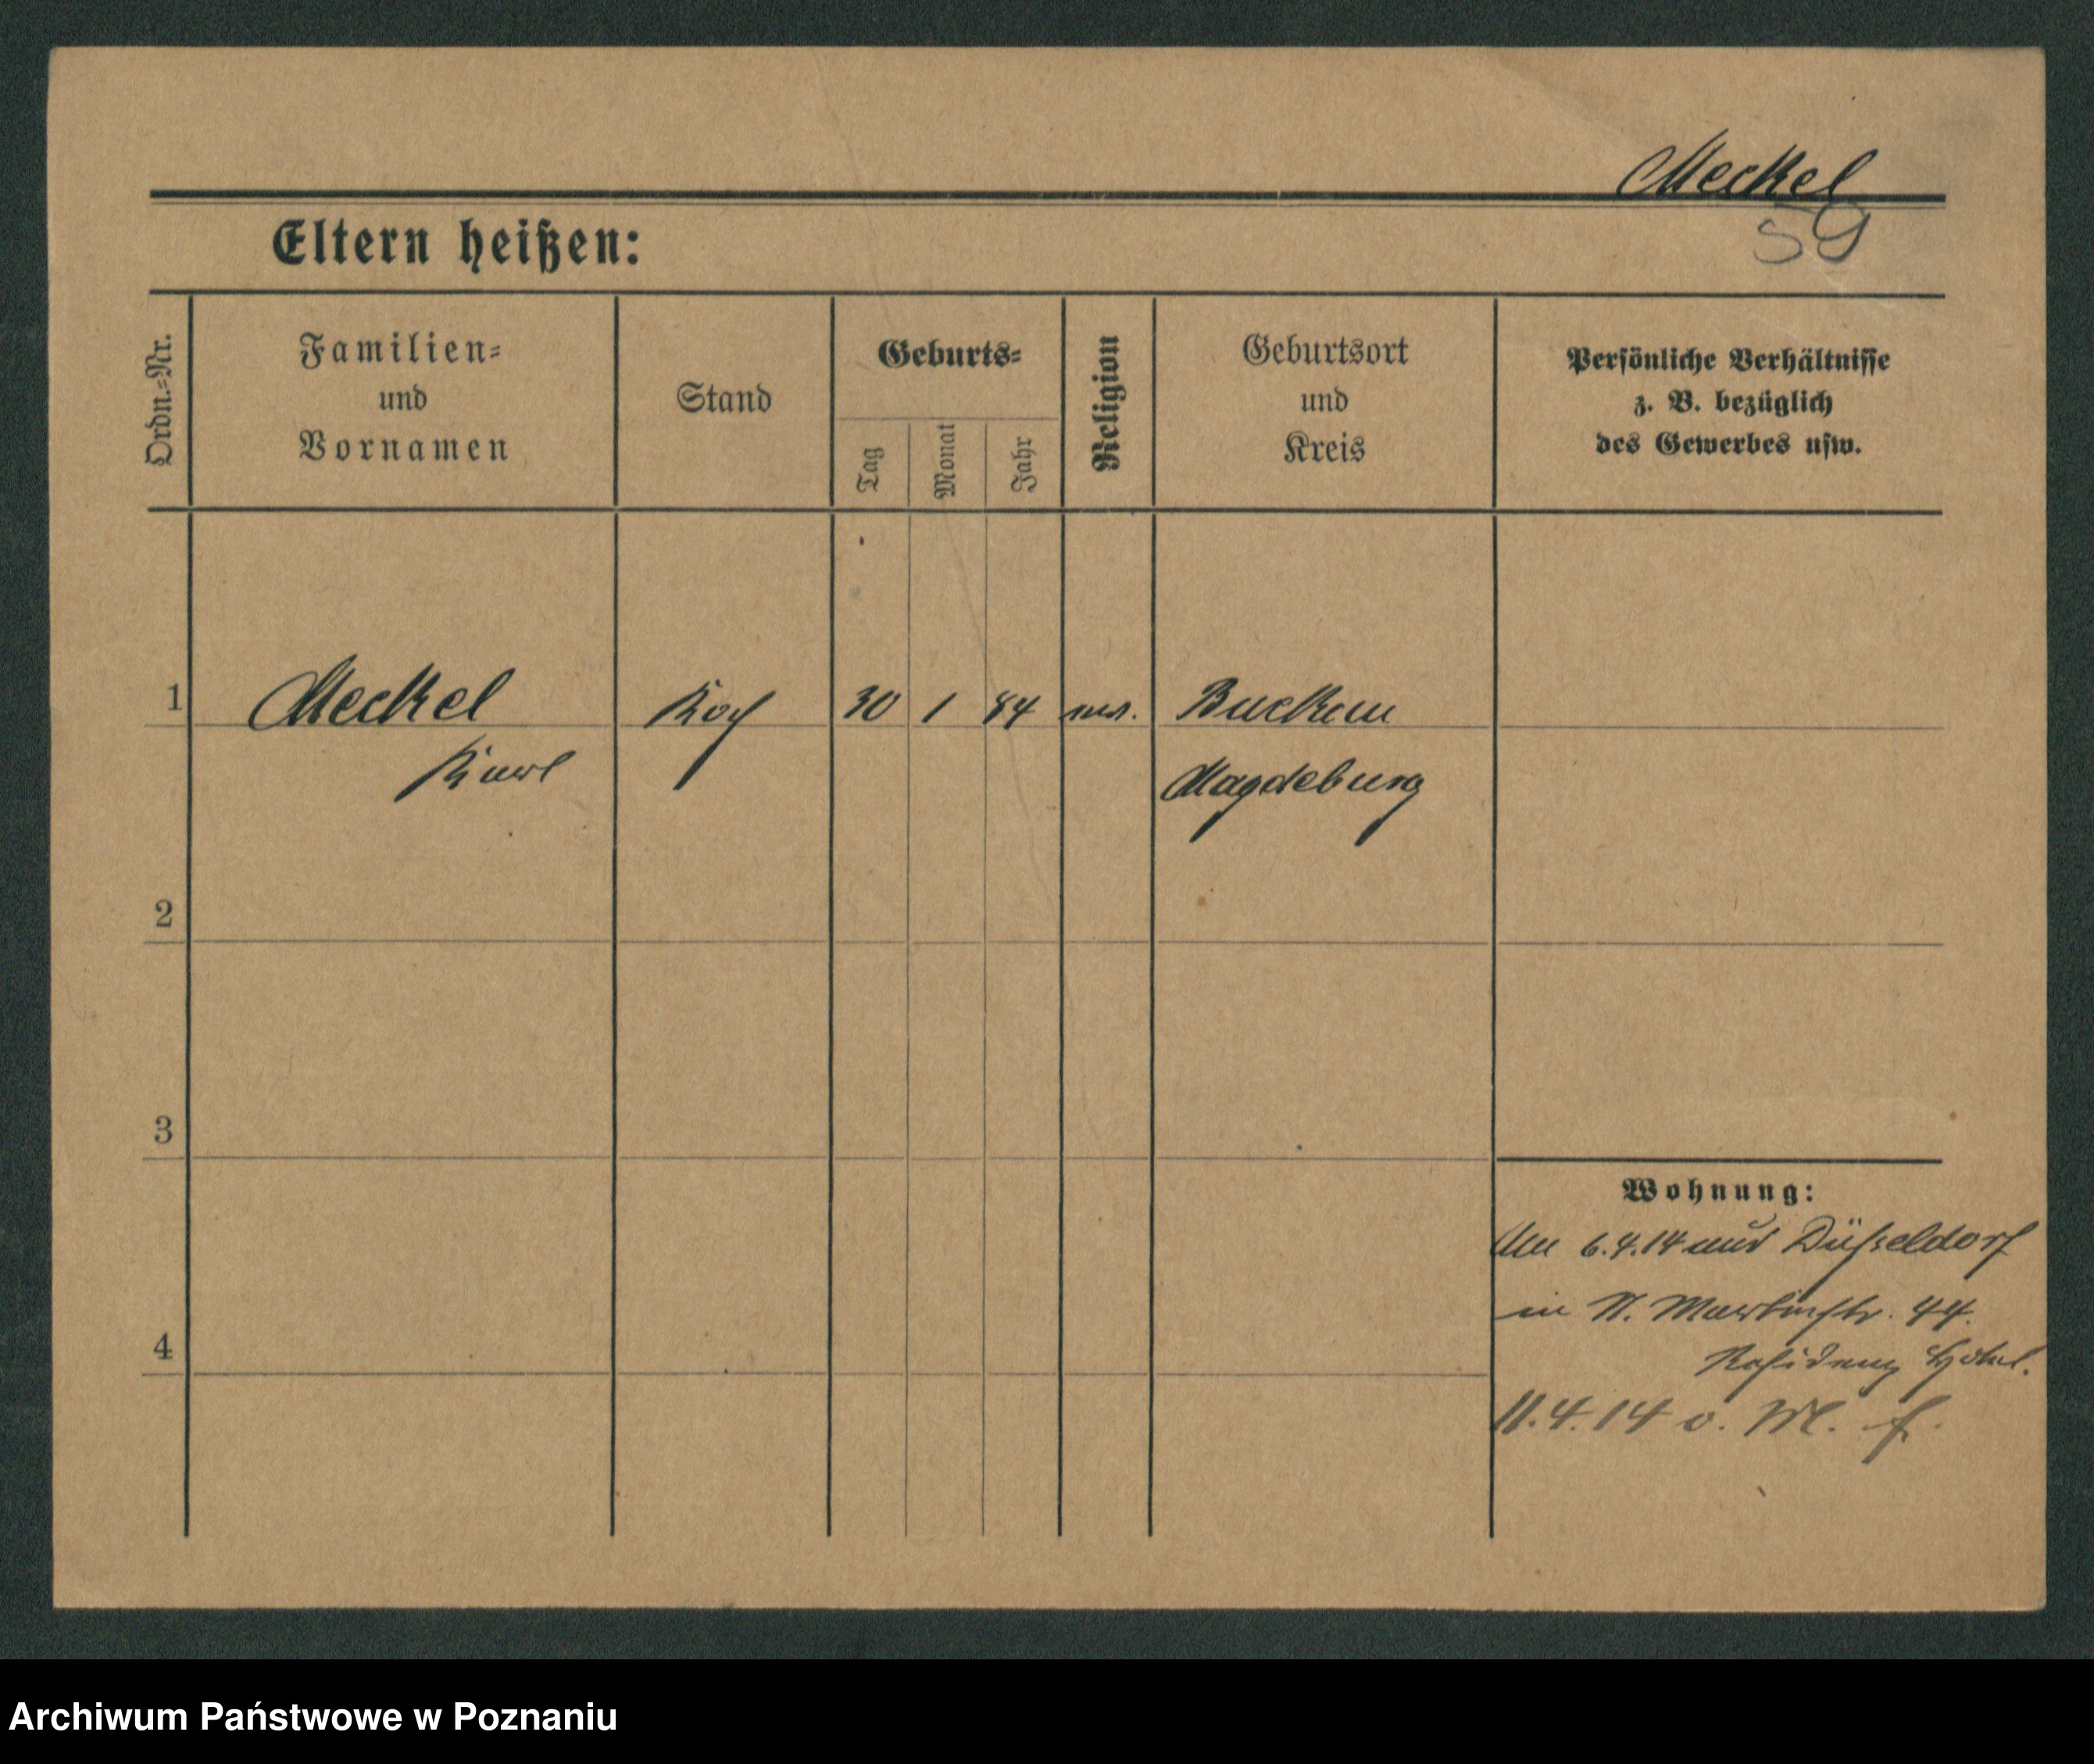 Meckel
59
Eltern heißen:
Ordn.=Nr.
Familien=
und
Vornamen
Stand
Geburts=
Tag
Monat
Jahr
Religion
Geburtsort
und
Kreis
Persönliche Verhältnisse
z. B. bezüglich
des Gewerbes usw.
1
Meckel
Karl
Koch
30
1
84
Buckau
Magdeburg
2
3
4
Wohnung:
6.4.14 aus Düsseldorf
in St. Martinstr. 44.
Residenz Hotel.
11.4.14 v. M.
Archiwum Państwowe w Poznaniu